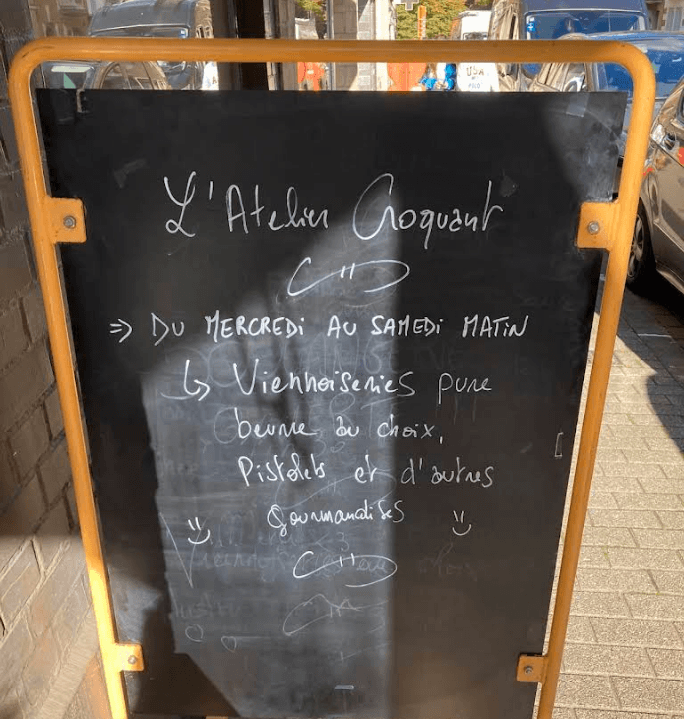 L'Atelier Croquant
=> DU MERCREDI AU SAMEDI MATIN
↳ Viennoiseries pure
beurre au choix,
Pistolets et d'autres
gourmandises